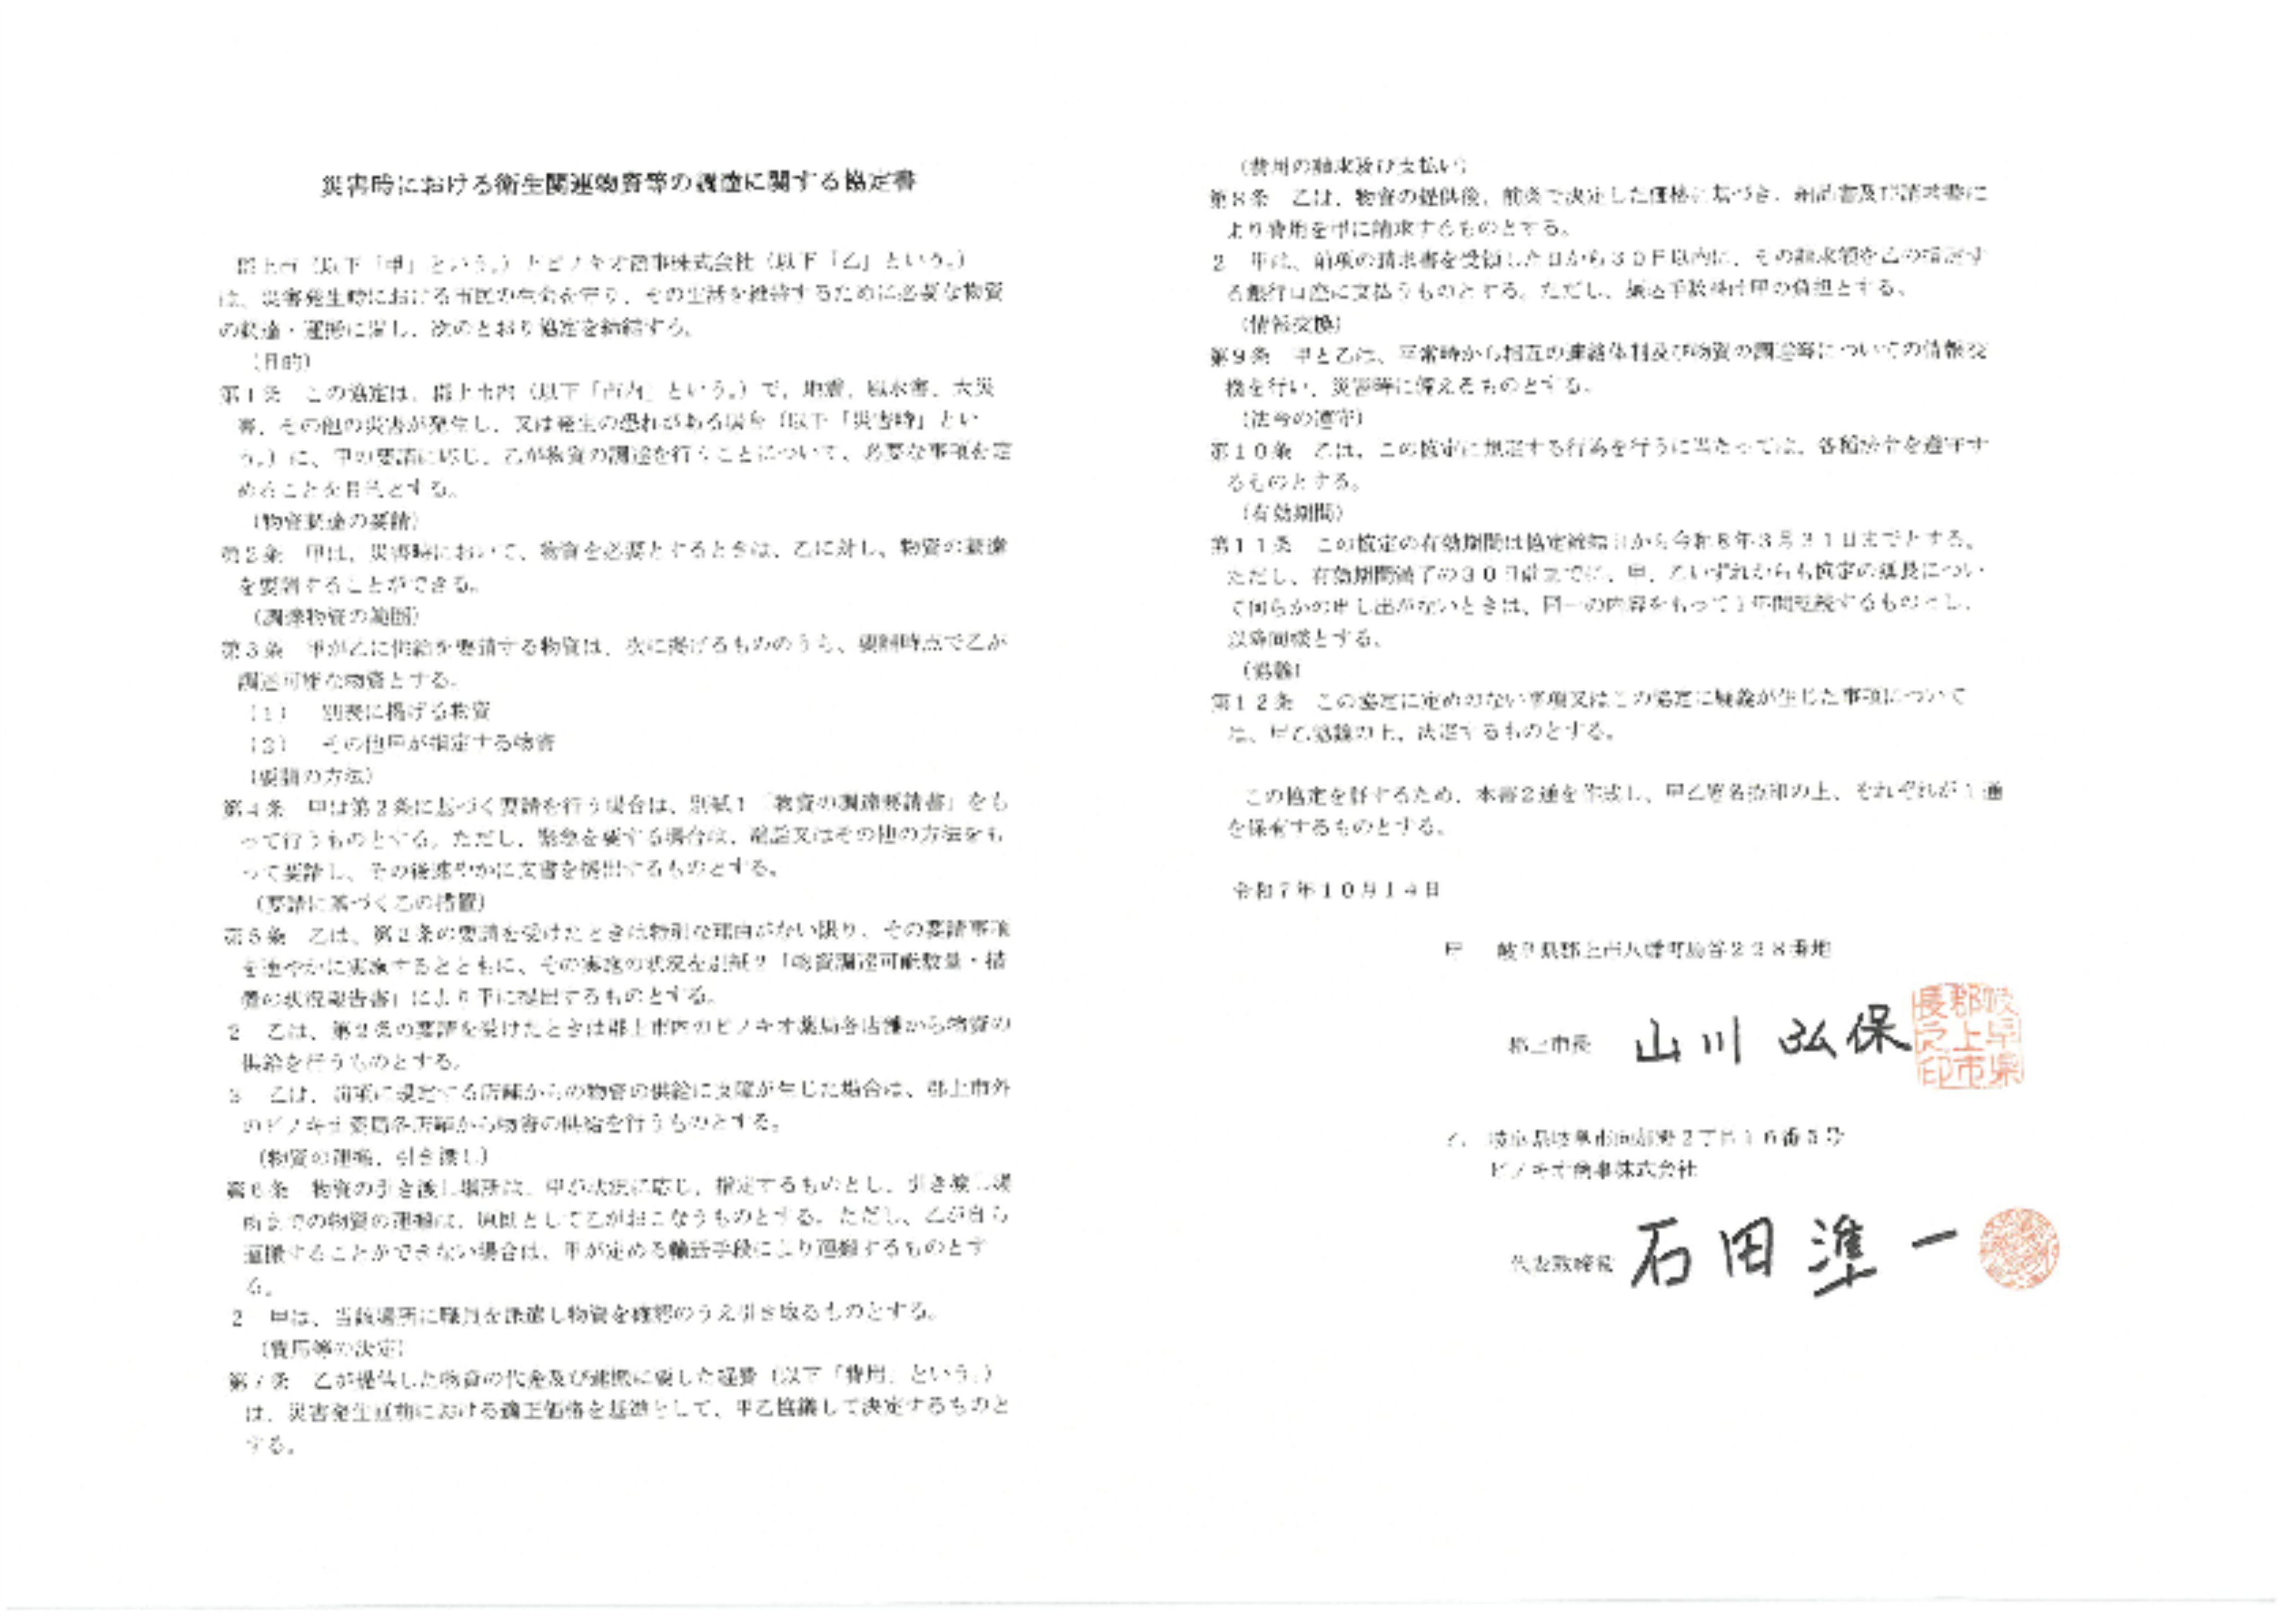 災害時における衛生関連物資等の調達に関する協定書
郡上市(以下「甲」という。)とピノキオ商事株式会社(以下「乙」という。)
は、災害発生時における市民の生命を守り、その生活を維持するために必要な物資
の調達・運搬に関し、次のとおり協定を締結する。
(目的)
第1条 この協定は、郡上市内(以下「市内」という。)で、地震、風水害、大災
害、その他の災害が発生し、又は発生の恐れがある場合(以下「災害時」とい
う。)に、甲の要請に応じ、乙が物資の調達を行うことについて、必要な事項を定
めることを目的とする。
(物資調達の要請)
第2条 甲は、災害時において、物資を必要とするときは、乙に対し、物資の調達
を要請することができる。
(調達物資の範囲)
第3条 甲が乙に供給を要請する物資は、次に掲げるもののうち、要請時点で乙が
調達可能な物資とする。
(1) 別表に掲げる物資
(2) その他甲が指定する物資
(要請の方法)
第4条 甲は第2条に基づく要請を行う場合は、別紙1「物資の調達要請書」をも
って行うものとする。ただし、緊急を要する場合は、電話又はその他の方法をも
って要請し、その後速やかに文書を提出するものとする。
(要請に基づく乙の措置)
第5条 乙は、第2条の要請を受けたときは特別な理由がない限り、その要請事項
を速やかに実施するとともに、その実施の状況を別紙2「物資調達可能数量・措
置の状況報告書」により甲に提出するものとする。
2 乙は、第2条の要請を受けたときは郡上市内のピノキオ薬局各店舗から物資の
供給を行うものとする。
3 乙は、前項に規定する店舗からの物資の供給に支障が生じた場合は、郡上市外
のピノキオ薬局各店舗から物資の供給を行うものとする。
(物資の運搬、引き渡し)
第6条 物資の引き渡し場所は、甲が状況に応じ、指定するものとし、引き渡し場
所までの物資の運搬は、原則として乙がおこなうものとする。ただし、乙が自ら
運搬することができない場合は、甲が定める輸送手段により運搬するものとす
る。
2 甲は、当該場所に職員を派遣し物資を確認のうえ引き取るものとする。
(費用等の決定)
第7条 乙が提供した物資の代金及び運搬に要した経費(以下「費用」という。)
は、災害発生直前における適正価格を基準として、甲乙協議して決定するものと
する。
(費用の請求及び支払い)
第8条 乙は、物資の提供後、前条で決定した価格に基づき、納品書及び請求書に
より費用を甲に請求するものとする。
2 甲は、前項の請求書を受領した日から30日以内に、その請求額を乙の指定す
る銀行口座に支払うものとする。ただし、振込手数料は甲の負担とする。
(情報交換)
第9条 甲と乙は、平常時から相互の連絡体制及び物資の調達等についての情報交
換を行い、災害時に備えるものとする。
(法令の遵守)
第10条 乙は、この協定に規定する行為を行うに当たっては、各種法令を遵守す
るものとする。
(有効期間)
第11条 この協定の有効期間は協定締結日から令和8年3月31日までとする。
ただし、有効期間満了の30日前までに、甲、乙いずれからも協定の延長につい
て何らかの申し出がないときは、同一の内容をもって1年間継続するものとし、
以降同様とする。
(協議)
第12条 この協定に定めのない事項又はこの協定に疑義が生じた事項について
は、甲乙協議の上、決定するものとする。
この協定を証するため、本書2通を作成し、甲乙署名捺印の上、それぞれが1通
を保有するものとする。
令和7年10月14日
甲 岐阜県郡上市八幡町島谷228番地
郡上市長 山川 弘保
岐阜県郡上市長之印
乙 岐阜県岐阜市 2丁目16番5号
ピノキオ商事株式会社
代表取締役 石田 準一